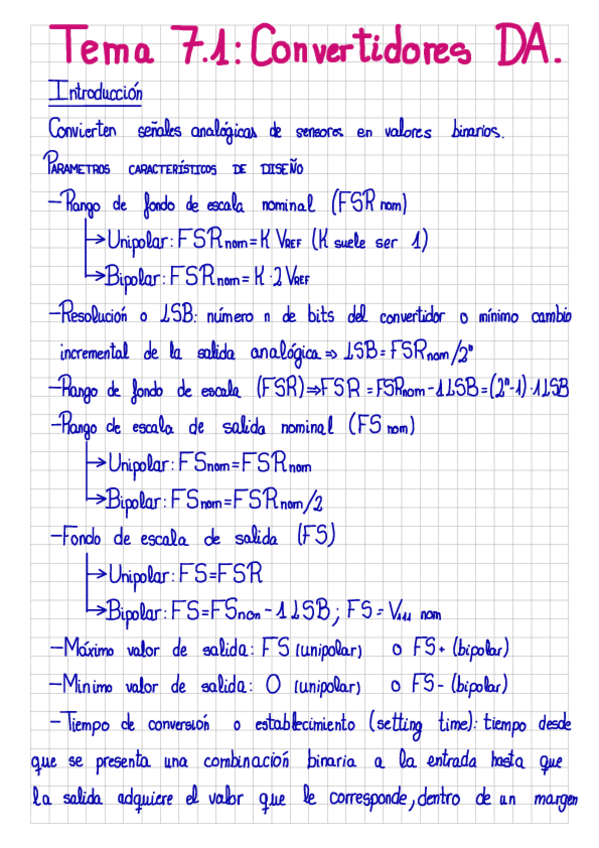 Tema 7.1: Convertidores DA.
Introducción
Convierten señales analógicas de sensores en valores binarios.
PARAMETROS CARACTERÍSTICOS DE DISEÑO
-Rango de fondo de escala nominal (FSR nom)
→Unipolar: FSRnom = K VREF (K suele ser 1)
→Bipolar: FSRnom = K·2 VREF
-Resolución o LSB: número n de bits del convertidor o mínimo cambio
incremental de la salida analógica ⇒ LSB = FSRnom/2ⁿ
-Rango de fondo de escala (FSR) ⇒ FSR = FSRnom - 1LSB = (2ⁿ-1)·1LSB
-Rango de escala de salida nominal (FS nom)
→Unipolar: FSnom = FSRnom
→Bipolar: FSnom = FSRnom/2
-Fondo de escala de salida (FS)
→Unipolar: FS = FSR
→Bipolar: FS = FSnon - 1LSB; FS = V111 nom
-Máximo valor de salida: FS (unipolar) o FS+ (bipolar)
-Minimo valor de salida: 0 (unipolar) o FS- (bipolar)
-Tiempo de conversión o establecimiento (setting time): tiempo desde
que se presenta una combinación binaria a la entrada hasta que
la salida adquiere el valor que le corresponde, dentro de un margen